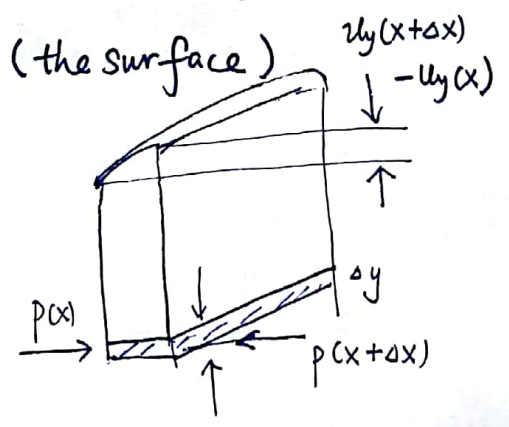 (the surface)
uy(x+Δx)
-uy(x)
Δy
p(x)
p(x+Δx)